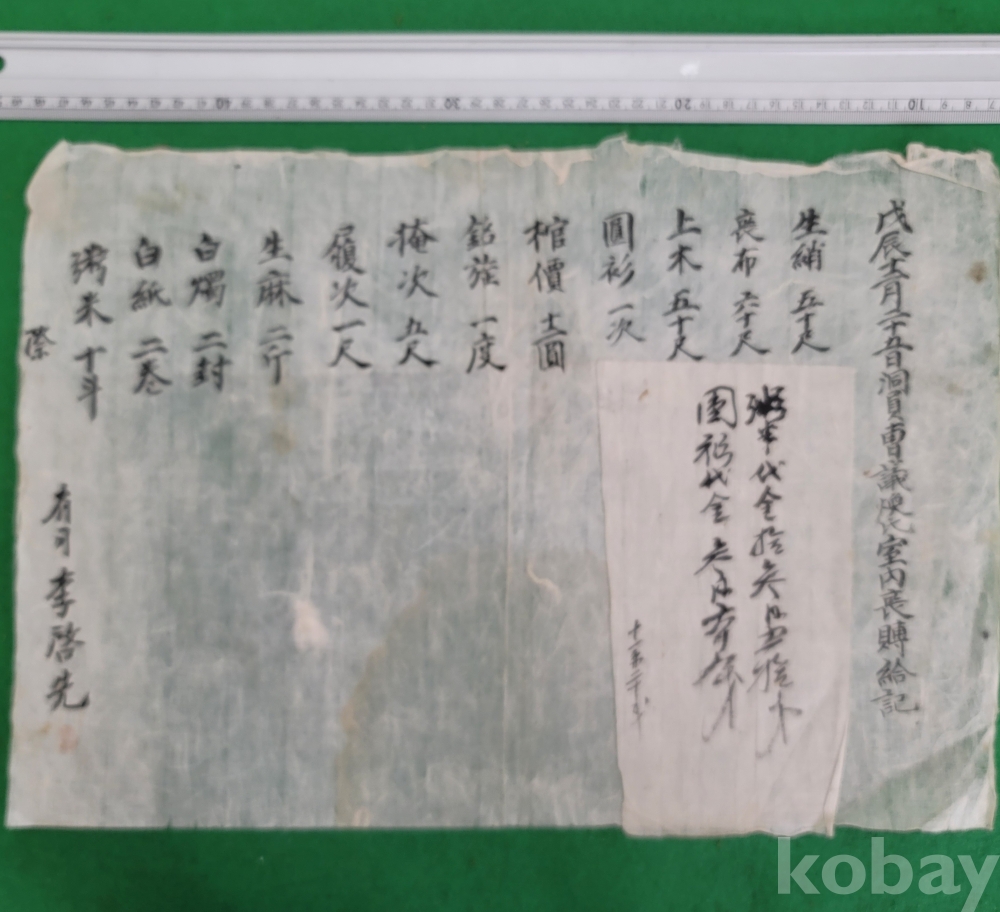 戊辰十二月二十五日洞員曺議煥氏室內喪賻給記
生綃 五十尺
喪布 六十尺
上木 五十尺
圓衫 一次
棺價 十二圓
銘旌 一度
掩次 五尺
履次 一尺
生麻 二斤
白燭 二封
白紙 二卷
粥米 十斗
際
有司 李啓先
粥米代金拾
圓衫代金
kobay